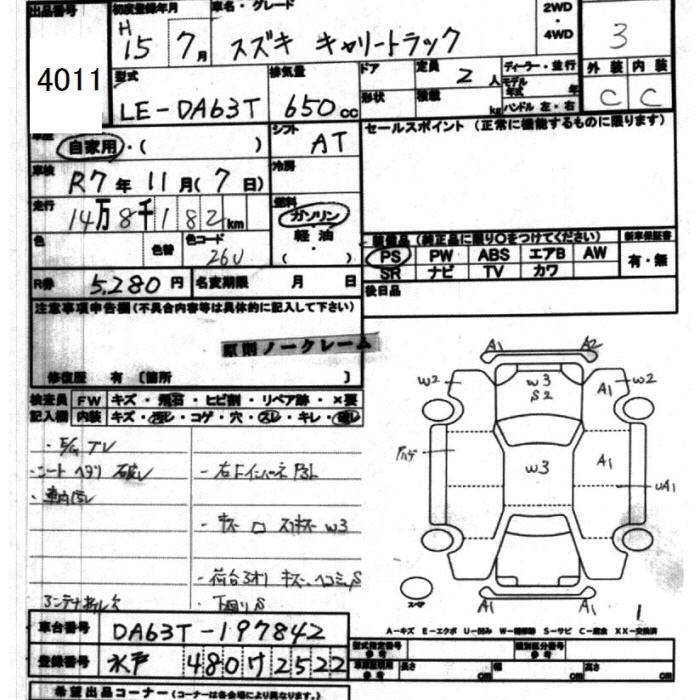 出品番号 初度登録年月 車名・グレード 2WD ・ 4WD 3
4011 H 15 7月 スズキ キャリートラック
型式 排気量 ドア 定員 2人 ディーラー・並行 外装 内装
LE-DA63T 650cc 形状 積載 kg モデル年式 年 ハンドル 左・右 C C
自家用・( ) シフト AT セールスポイント (正常に機能するものに限ります)
車検 R7年 11月(7日) 冷房
走行 14万8千182km 燃料 ガソリン 軽油 ( )
色 色替 色コード 26U
装備品 (純正品に限り○をつけてください) 新車保証書
PS PW ABS エアB AW 有・無
SR ナビ TV カワ
R券 5,280円 名変期限 月 日 後日品
注意事項申告欄(不具合内容等は具体的に記入して下さい)
原則ノークレーム
修復歴 有 [箇所 ]
検査員 FW キズ・飛石・ヒビ割・リペア跡・×要
記入欄 内装 キズ・汚レ・コゲ・穴・スレ・キレ・破レ
車内汚レ
A1 A2
W2 W3 S2 A1 W2
W3 A1 UA1
A1 A1
1
A-キズ E-エクボ U-凹み W-補修跡 S-サビ C-腐食 XX-交換済
車台番号 DA63T-197842
型式指定番号 参考 類別区分番号 参考
登録番号 水戸 480 ケ 2522
長さ cm 幅 cm 高さ cm
希望出品コーナー(コーナーは各会場により異なります。)